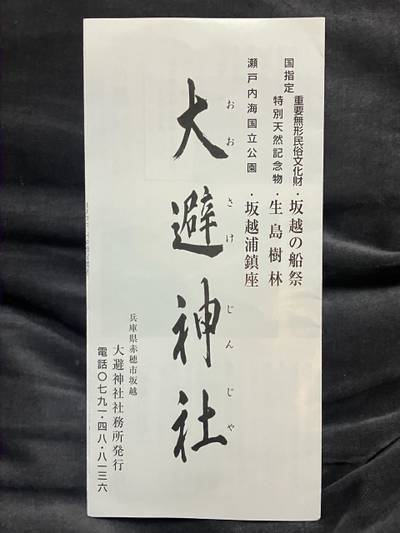 国指定
重要無形民俗文化財・坂越の船祭
特別天然記念物・生島樹林
瀬戸内海国立公園・坂越浦鎮座
大避神社
おおさけじんじゃ
兵庫県赤穂市坂越
大避神社社務所発行
電話〇七九一・四八・八一三六